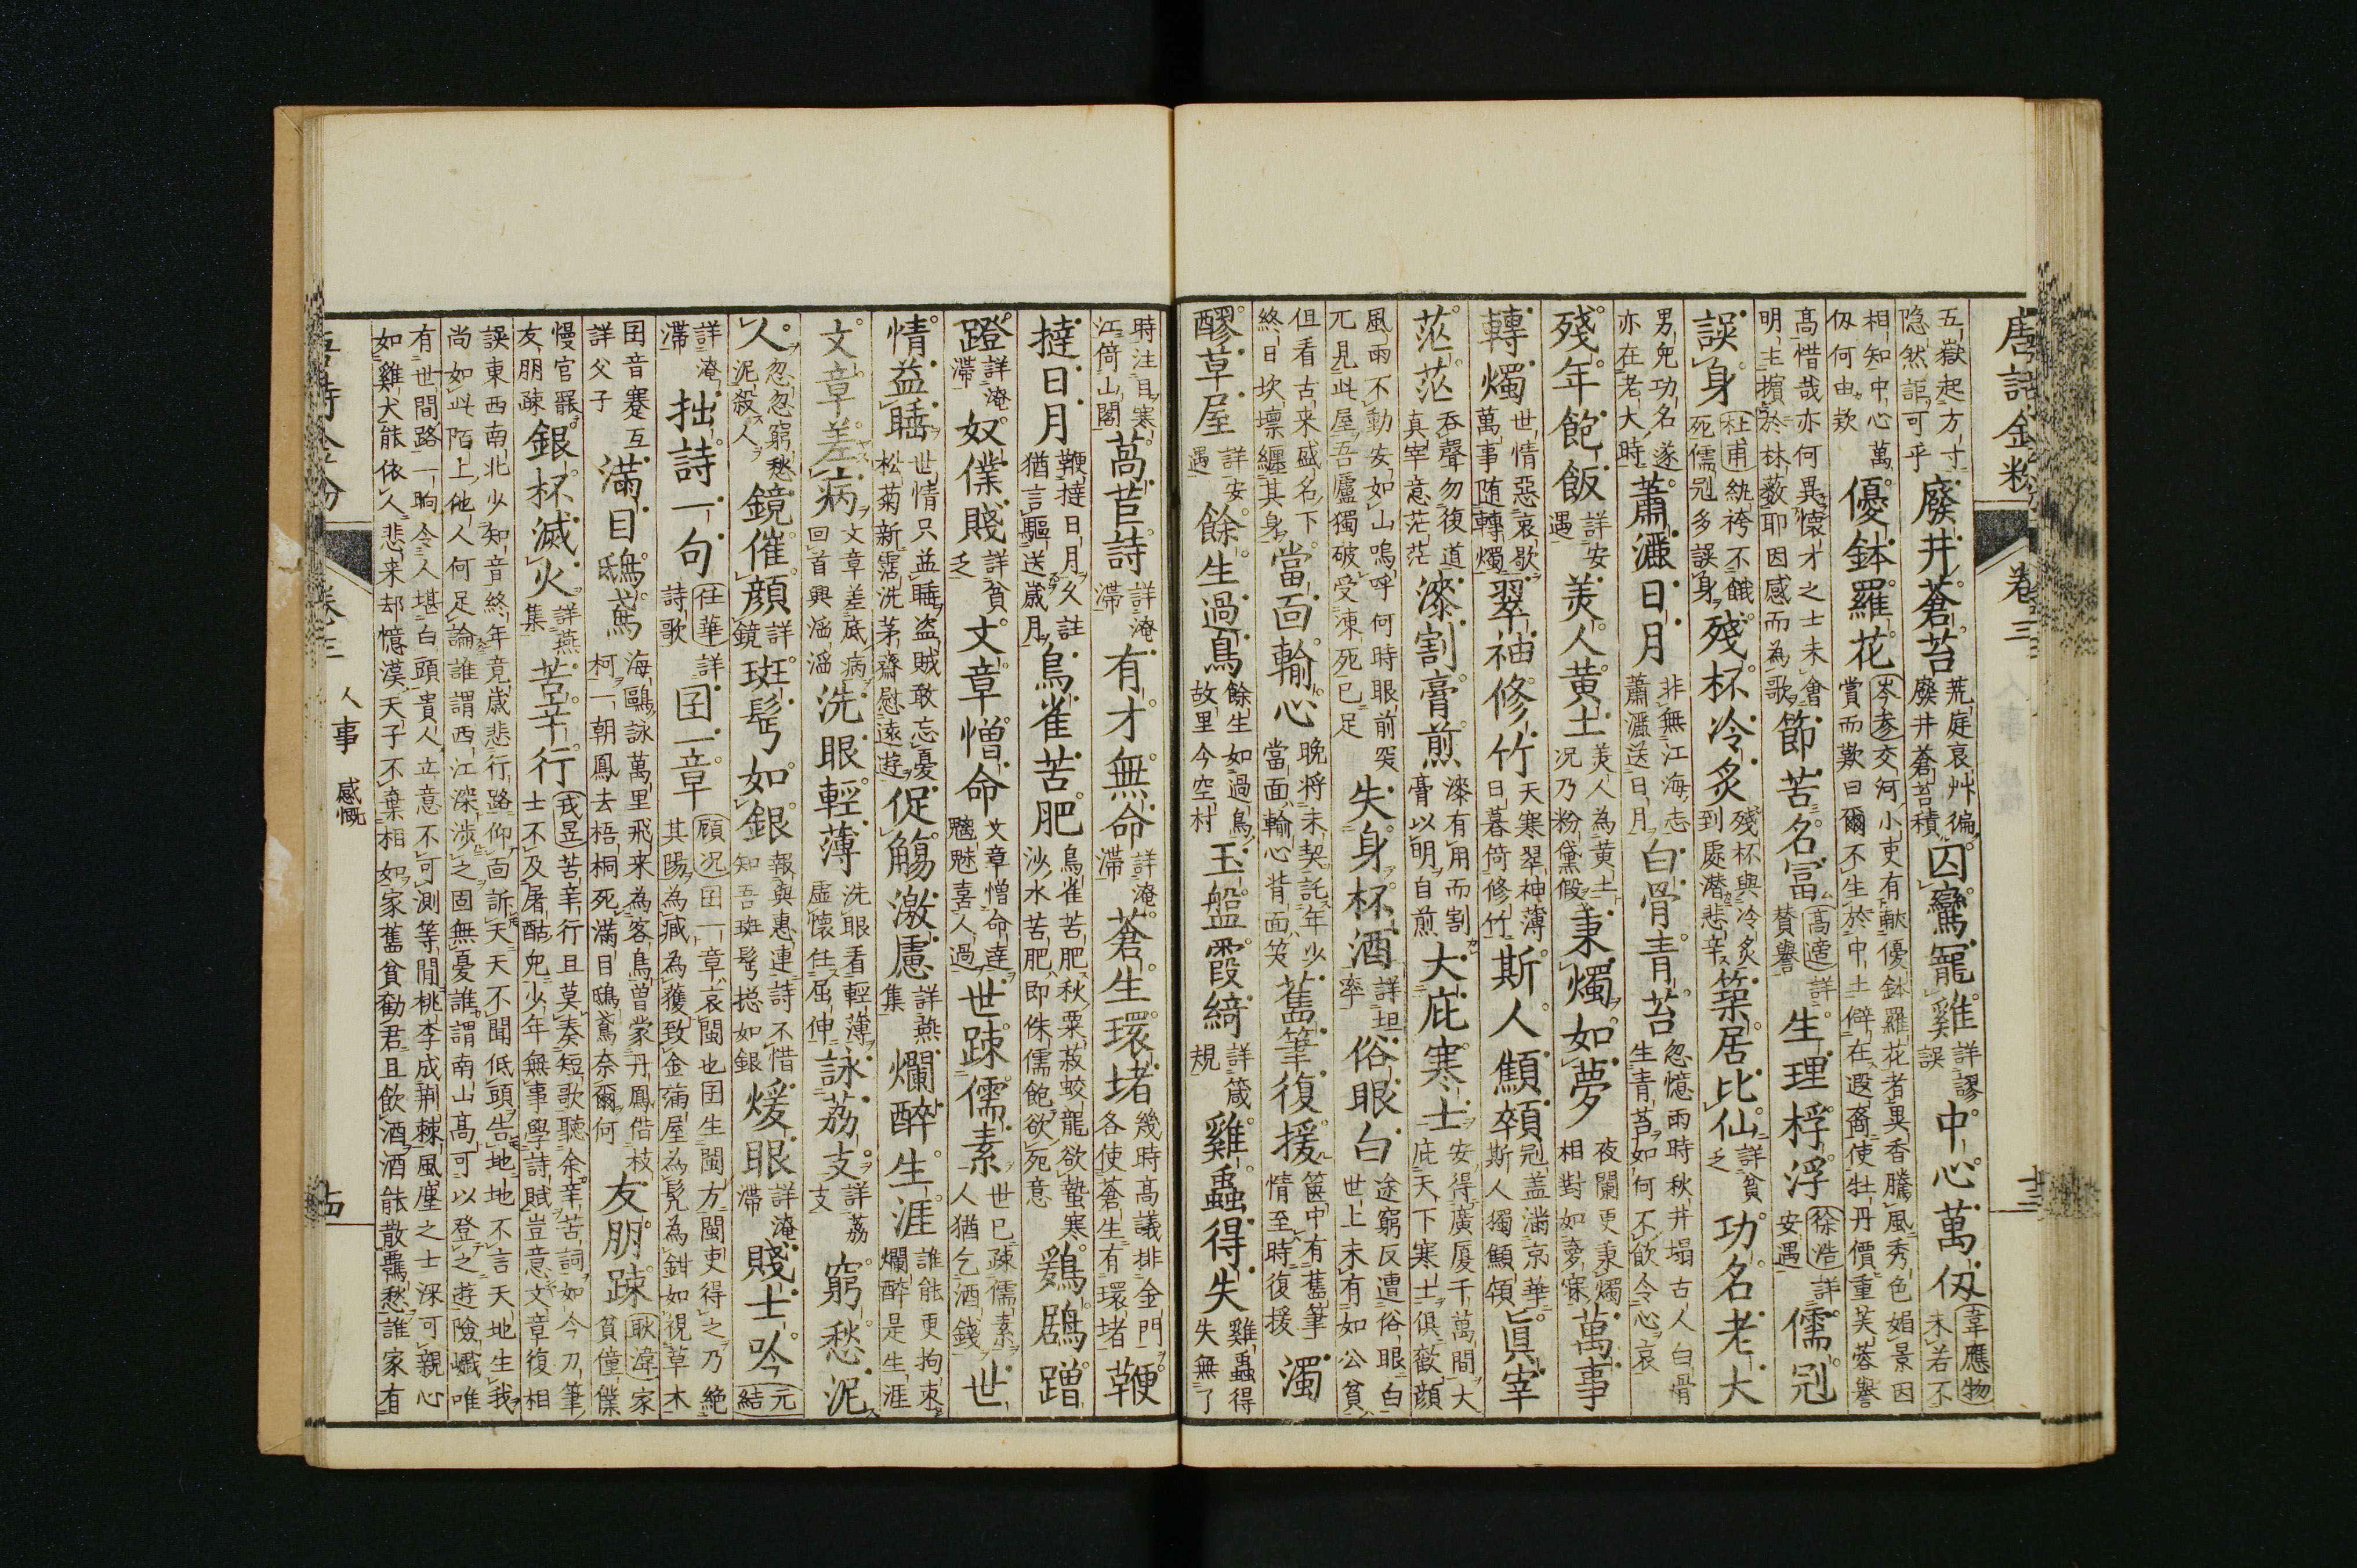 唐詩金粉 卷三 十三
五嶽起方寸隱然詎可乎 廢井蒼苔 荒庭衰艸徧廢井蒼苔積 囚鸞寵雞 詳謬誤 中心萬仭 韋應物 未若不
相知中心萬仭何由款 優鉢羅花 岑参 交河小吏有献優鉢羅花者異香騰風秀色媚景因賞而歎曰爾不生於中土僻在遐裔使牡丹價重芙蓉譽
高惜哉亦何異懷才之士未會明主擯於林薮耶因感而為歌 節苦名富 高適 詳賛譽 生理桴浮 徐浩 詳安遇 儒冠
誤身 杜甫 紈袴不餓死儒冠多誤身 殘杯冷炙 殘杯與冷炙到處潜悲辛 築居比仙 詳貧乏 功名老大
男兒功名遂亦在老大時 蕭灑日月 非無江海志蕭灑送日月 白骨青苔 忽憶雨時秋井塌古人白骨生青苔如何不飲令心哀
殘年飽飯 詳安遇 美人黄土 美人為黄土况乃粉黛假 秉燭如夢 夜闌更秉燭相對如夢寐 萬事
轉燭 世情惡衰歇萬事随轉燭 翠袖修竹 天寒翠袖薄日暮倚修竹 斯人顦顇 冠盖滿京華斯人獨顦顇 眞宰
茫茫 吞聲勿復道真宰意茫茫 漆割膏煎 漆有用而割膏以明自煎 大庇寒士 安得廣厦千萬間大庇天下寒士俱歡顔
風雨不動安如山嗚呼何時眼前突兀見此屋吾廬獨破受凍死已足 失身杯酒 詳坦率 俗眼白 途窮反遭俗眼白世上未有如公貧
但看古来盛名下終日坎壈纒其身 當面輸心 晚将末契託年少當面輸心背面笑 舊筆復援 篋中有舊筆情至時復援 濁
醪草屋 詳安遇 餘生過鳥 餘生如過鳥故里今空村 玉盤霞綺 詳箴規 雞蟲得失 雞蟲得失無了
時注目寒江倚山閣 萵苣詩 詳淹滞 有才無命 詳淹滞 蒼生環堵 幾時高議排金門各使蒼生有環堵 鞭
撻日月 鞭撻日月久註猶言驅送歳月 烏雀苦肥 烏雀苦肥秋粟菽蛟龍欲蟄寒沙水苦肥即侏儒飽欲死意 鷄鶋蹭
蹬 詳淹滞 奴僕賤 詳貧乏 文章憎命 文章憎命達魑魅喜人過 世踈儒素 世已疎儒素人猶乞酒錢 世
情益睡 世情只益睡盗賊敢忘憂松菊新霑洗茅齋慰遠遊 促觴激慮 詳燕集 爛醉生涯 誰能更拘束爛醉是生涯
文章差病 文章差底病回首興滔滔 洗眼輕薄 洗眼看輕薄虛懷任屈伸 詠荔支 詳荔支 窮愁泥
人 忽忽窮愁泥殺人 鏡催顔 詳鏡 斑髩如銀 報與惠連詩不惜知吾斑髩揔如銀 煖眼 詳淹滞 賤士吟 元結
詳淹滞 拙詩一句 任華 詳詩歌 囝一章 顧况 囝一章哀閩也囝生閩方閩吏得之乃絶其陽為臧為獲致金滿屋為髠為鉗如視草木
囝音蹇互詳父子 滿目鴟鳶 海鷗詠萬里飛来為客鳥曽蒙丹鳳借枝柯一朝鳳去梧桐死滿目鴟鳶奈爾何 友朋踈 耿湋 家貧僮僕
慢官罷友朋疎 銀杯滅火 詳燕集 苦辛行 戎昱 苦辛行且莫奏短歌聽余辛苦詞如今刀筆士不及屠酤兒少年無事學詩賦豈意文章復相
誤東西南北少知音終年竟歳悲行路仰面訴天天不聞低頭告地地不言天地生我尚如此陌上他人何足論誰謂西江深涉之固無憂誰謂南山高可以登之遊險巇唯
有世間路一晌令人堪白頭貴人立意不可測等閒桃李成荆棘風塵之士深可親心如雞犬能依人悲来却憶漢天子不棄相如家舊貧勸君且飲酒酒能散羈愁誰家有
卷三 人事 感慨